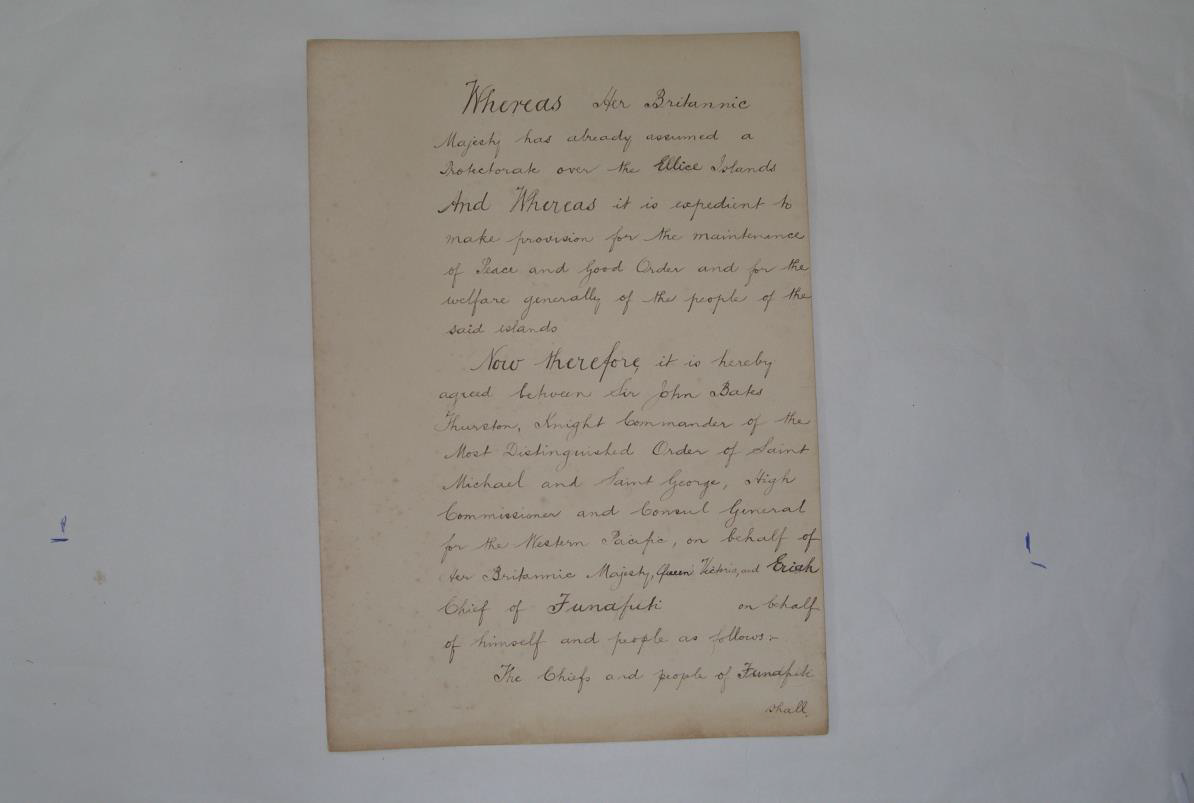 Whereas Her Britannic
Majesty has already assumed a
Protectorate over the Ellice Islands
And Whereas it is expedient to
make provision for the maintenence
of Peace and Good Order and for the
welfare generally of the people of the
said islands
Now therefore, it is hereby
agreed between Sir John Bates
Thurston, Knight Commander of the
Most Distinguished Order of Saint
Michael and Saint George, High
Commissioner and Consul General
for the Western Pacific, on behalf of
Her Britannic Majesty, Queen Victoria, and Eriah
Chief of Funafuti on behalf
of himself and people as follows:-
The Chiefs and people of Funafuti
shall